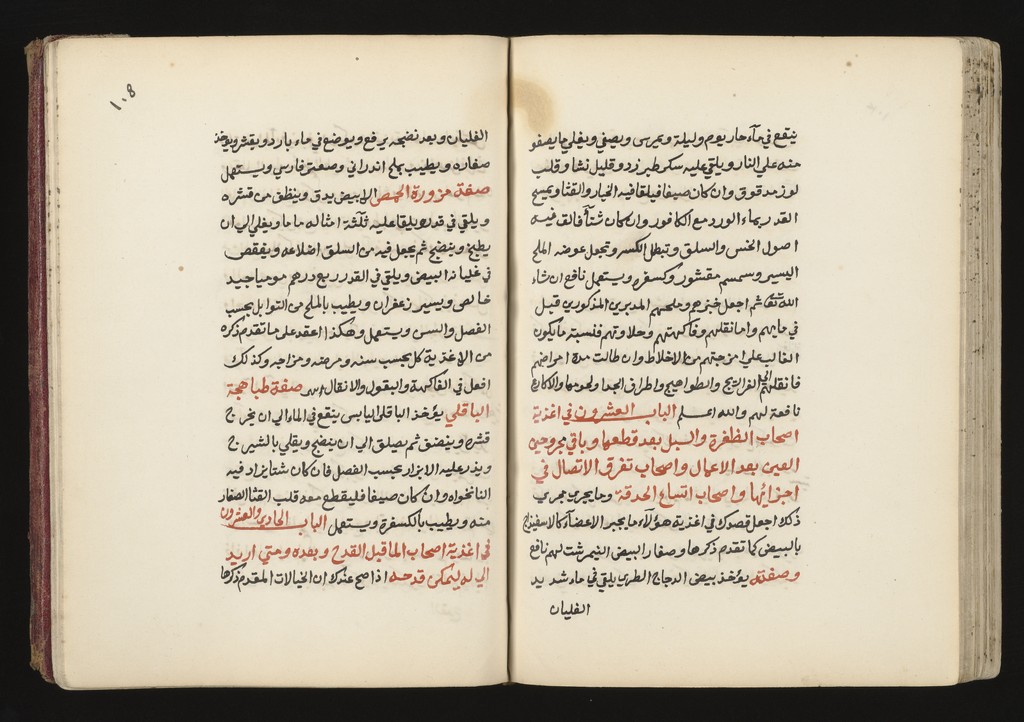 ينقع في مآء حار يوم وليلة ويمرس ويصفي ويغلي مايصفو
منه علي النار ويلقي عليه سكر طبرزد وقليل نشا وقلب
لوز مدقوق وان كان صيفا فيلقا فيه الخيار والقثا ويمسح
القدر بماء الورد مع الكافور وان كان شتآ فالق فيه
اصول الخس والسلق وتبطل الكسر وتجعل عوضه الملح
اليسير وسمسم مقشور وكسفره ويستعمل نافع ان شاء
الله تعالي ثم اجعل خبزهم وملحهم المدبرين المذكورين قبل
في مابهم واما نقلهم وفاكهتهم وحلاوتهم فنسبة مايكون
الغالب علي امزجتهم من الاخلاط وان طالت مدة امراضهم
فانقلهم الي الفراريج والطواهيج واطراف الجدا ولحومها والاكارع
نافعة لهم والله اعلم الباب العشرون في اغذية
اصحاب الظفرة والسبل بعد قطعها وباقي مجروحين
العين بعد الاعمال واصحاب تفرق الاتصال في
اجزائها واصحاب اتساع الحدقة وما يجري مجري
ذلك اجعل قصدك في اغذية هؤلآء ما يجبر الاعضآء كالاسفيذاج
بالبيض كما تقدم ذكرها وصفار البيض النيمرشت لهم نافع
وصفته يؤخذ بيض الدجاج الطري يلقي في ماء شديد
الغليان
١٠٨
الغليان وبعد نضجه يرفع ويوضع في ماء بارد ويقشر ويوخذ
صفاره ويطيب بملح اندراني وصعتر فارسي ويستعمل
صفة مزورة الحمص الابيض يدق وينظف من قشره
ويلقي في قدر ويلقا عليه ثلثة امثاله ماء ويغلي الي ان
يطبخ وينضج ثم يجعل فيه من السلق اضلاعه ويفقص
في غليانه البيض ويلقي في القدر ربع درهم موميا جيد
خالص ويسير زعفران ويطيب بالملح من التوابل بحسب
الفصل والسن ويستعمل وهكذا اعقد علي ما تقدم ذكره
من الاغذية كل بحسب سنه ومرضه ومزاجه وكذلك
افعل في الفاكهة والبقول والانقال لهم صفة طباهجة
الباقلي يؤخذ الباقلا اليابس ينقع في الماء الي ان يخرج
قشره وينضق ثم يصلق الي ان ينضج ويقلي بالشيرج
ويذر عليه الابزار بحسب الفصل فان كان شتا يزاد فيه
النانخواه وان كان صيفا فليقطع معه قلب القثا الصغار
منه ويطيب بالكسفرة ويستعمل الباب الحادي والعشرون
في اغذية اصحاب الما قبل القدح وبعده ومتي اريد
الي له ليمكن قدحه اذا صح عندك ان الخيالات المقدم ذكرها